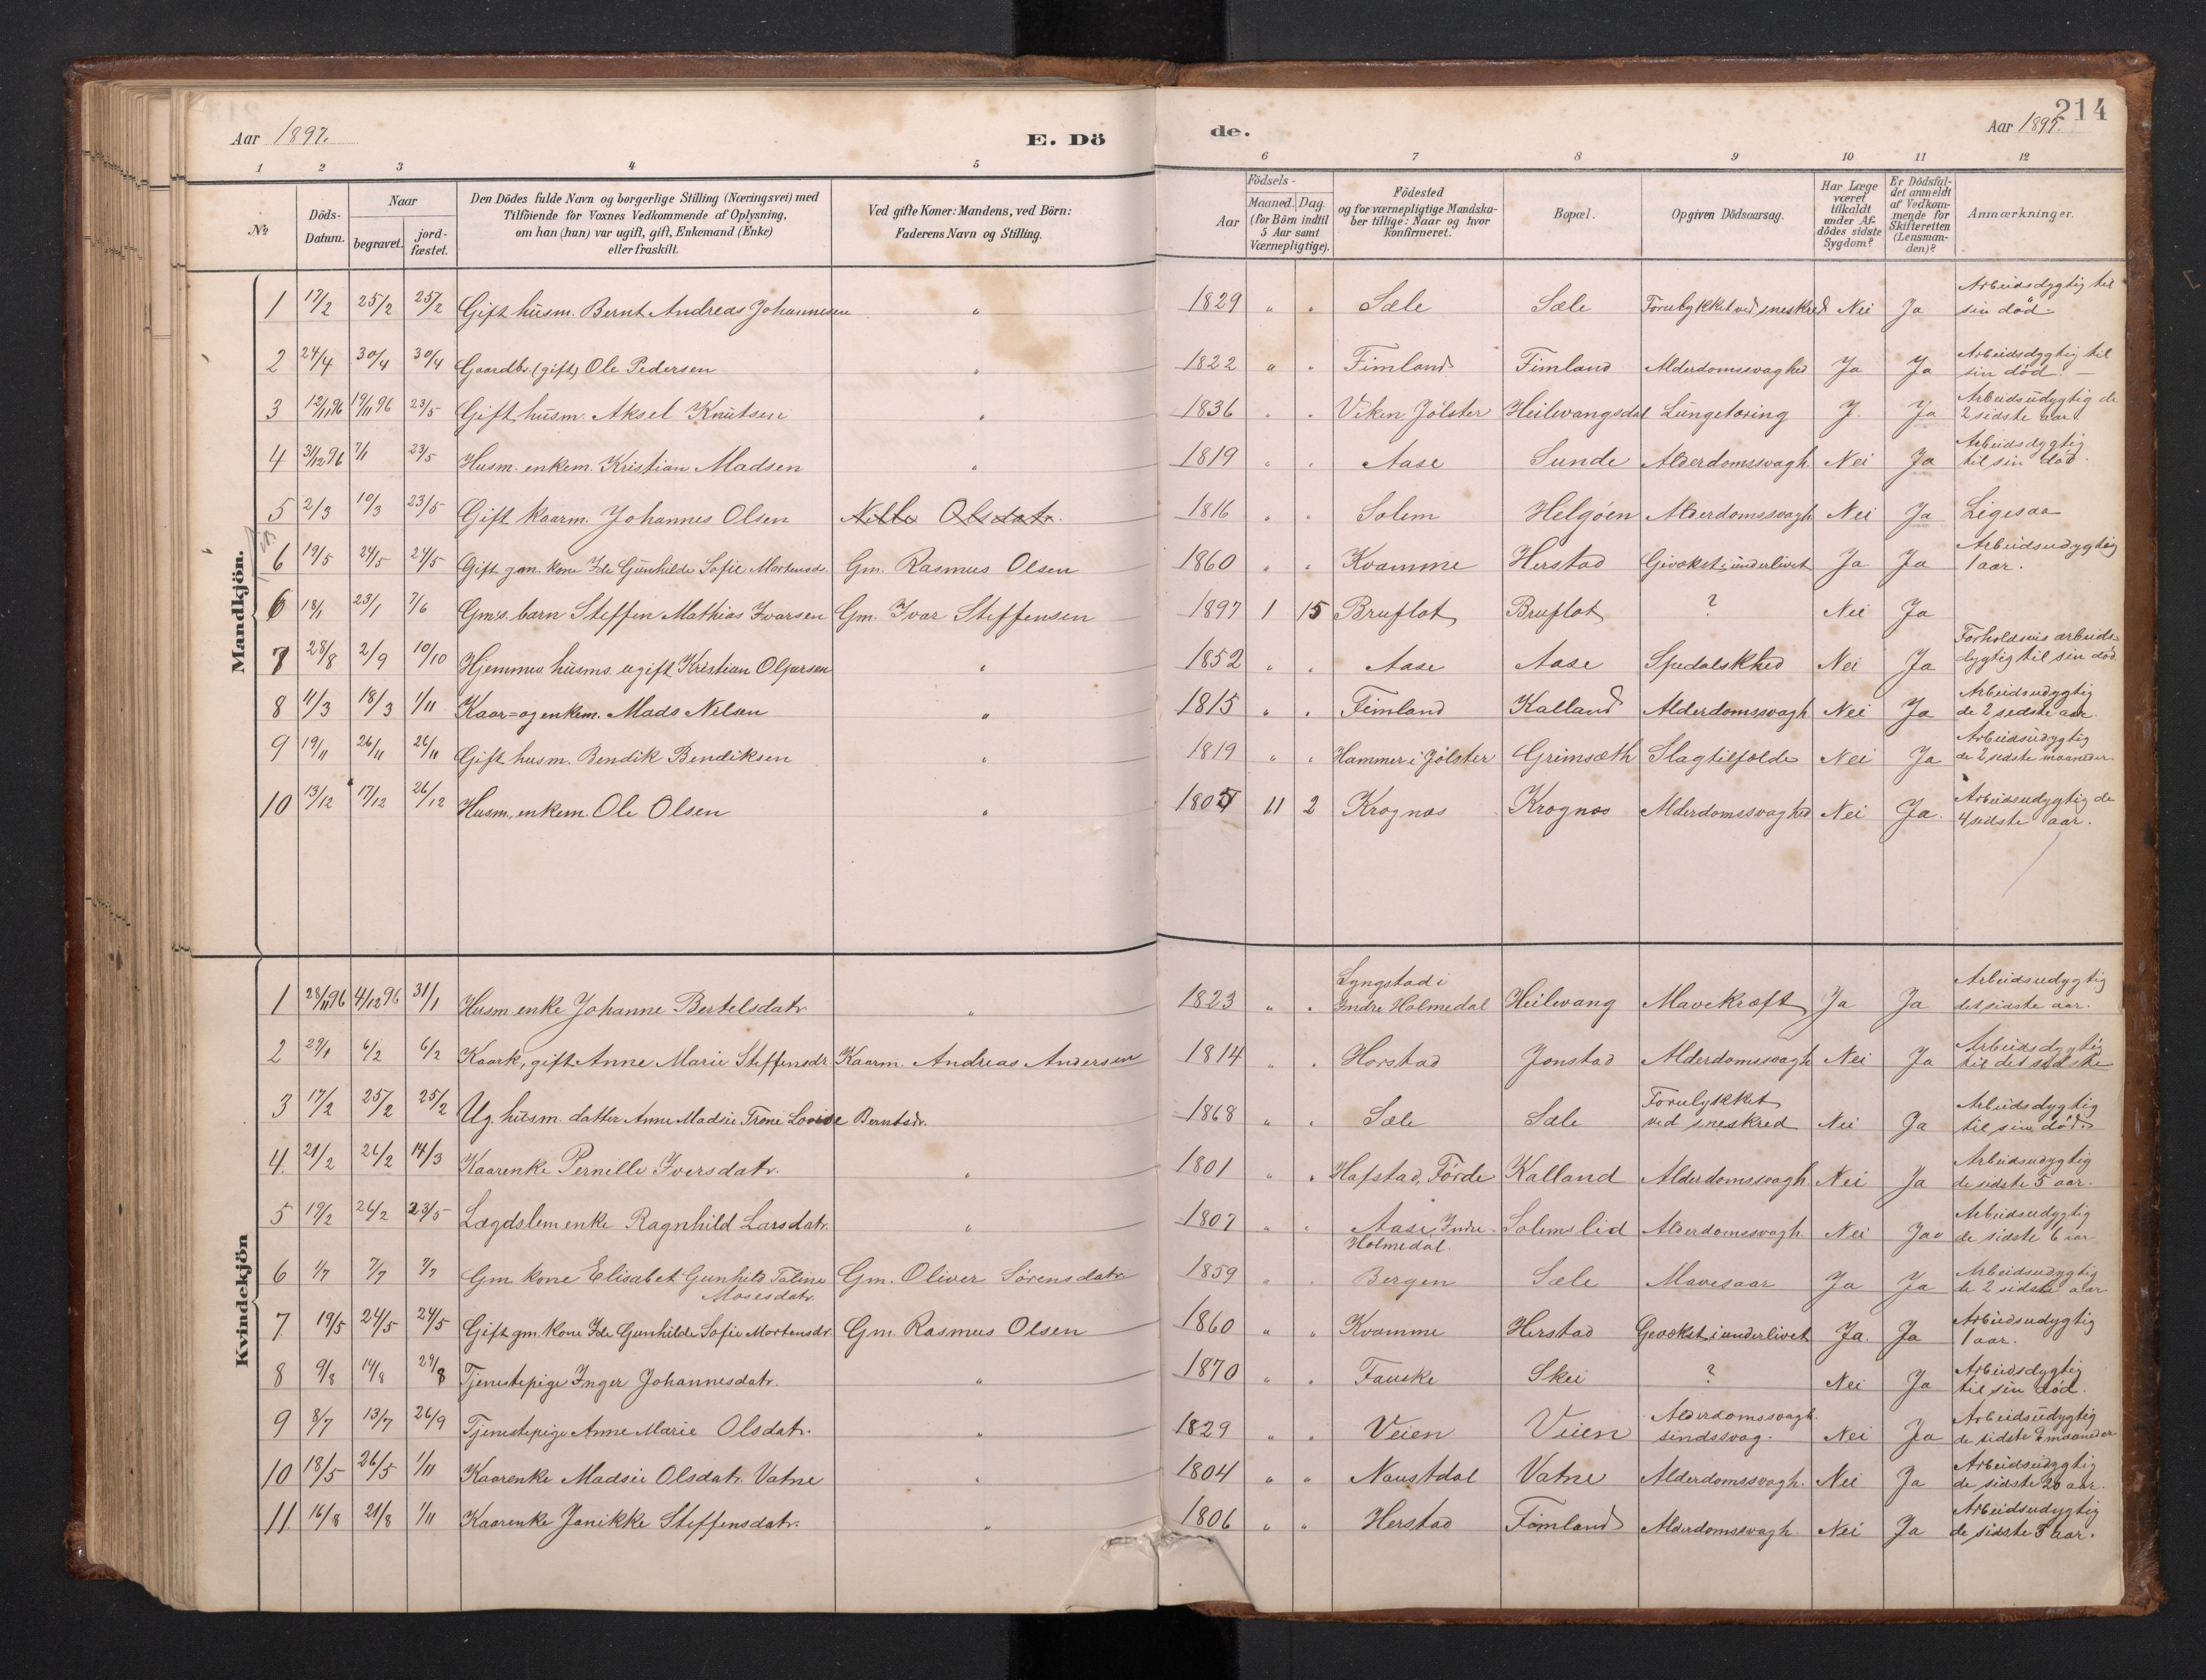 214
Aar 1897.
E. Dö
de.
Aar 1897.
1 2 3 4 5 6 7 8 9 10 11 12
No
Döds-
Datum.
Naar
begravet.
jord-
fæstet.
Den Dödes fulde Navn og borgerlige Stilling (Næringsvei) med
Tilföiende for Voxnes Vedkommende af Oplysning,
om han (hun) var ugift, gift, Enkemand (Enke)
eller fraskilt.
Ved gifte Koner: Mandens, ved Börn:
Faderens Navn og Stilling.
Födsels-
Aar
Maaned. Dag.
(for Börn indtil
5 Aar samt
Værnepligtige).
Födested
og for værnepligtige Mandska-
ber tillige: Naar og hvor
konfirmeret.
Bopæl.
Opgiven Dödsaarsag.
Har Læge
været
tilkaldt
under Af-
dödes sidste
Sygdom?
Er Dödsfal-
det anmeldt
af Vedkom-
mende for
Skifteretten
(Lensman-
den)?
Anmærkninger.
Mandkjön.
1 17/2 25/2 25/2 Gift husm. Bernt Andreas Johannesen " 1829 " " Sæle Sæle Forulykket ved sneskred Nei Ja Arbeidsdygtig til
sin död.
2 24/4 30/4 30/4 Gaardbr. (gift) Ole Pedersen " 1822 " " Fimland Fimland Alderdomssvaghed Ja Ja Arbeidsdygtig til
sin död. —
3 12/11 96 19/11 96 23/5 Gift husm. Aksel Knutsen " 1836 " " Viken Jölster Heilevangsdal Lungetæring J. Ja Arbeidsudygtig de
2 sidste aar.
4 31/12 96 7/1 23/5 Husm. enkem. Kristian Madsen " 1819 " " Aase Sunde Alderdomssvagh. Nei Ja Arbeidsdygtig
til sin död.
5 2/3 10/3 23/5 Gift kaarm. Johannes Olsen Nille Olsdatr. 1816 " " Solem Helgöen Alderdomssvagh. Nei Ja Ligesaa
6 19/5 24/5 24/5 Gift gm. kone Ide Gunhilde Sofie Mortensdr. Gm. Rasmus Olsen 1860 " " Kvamme Herstad Gevækst i underlivet Ja Ja Arbeidsudygtig
1 aar.
6 18/1 23/1 7/6 Gms. barn Steffen Mathias Ivarsen Gm. Ivar Steffensen 1897 1 15 Bruflot Bruflot ? Nei Ja
7 28/8 2/9 10/10 Hjemmev husms. ugift Kristian Oljarsen " 1852 " " Aase Aase Spedalskhed Nei Ja Forholdsvis arbeids-
dygtig til sin död.
8 11/3 18/3 1/11 Kaar= og enkem. Mads Nilsen " 1815 " " Fimland Kalland Alderdomssvagh. Nei Ja Arbeidsudygtig
de 2 sidste aar.
9 19/11 26/11 26/11 Gift husm. Bendik Bendiksen " 1819 " " Hammer i Jölster Grimsæth Slagtilfælde Nei Ja Arbeidsudygtig
de 2 sidste maaneder.
10 13/12 17/12 26/12 Husm., enkem. Ole Olsen " 11 2 Krognæs Krognæs Alderdomssvaghed Nei Ja. Arbeidsudygtig de
4 sidste aar.
Kvindekjön
1 28/11 96 4/12 96 31/1 Husm enke Johanne Bertelsdatr " 1823 " " Lyngstad i
Indre Holmedal Heilevang Mavekræft Ja Ja Arbeidsudygtig
det sidste aar.
2 29/1 6/2 6/2 Kaark, gift Anne Marie Steffensdr. Kaarm. Andreas Andersen 1814 " " Horstad Jonstad Alderdomssvagh Nei Ja Arbeidsdygtig
til det sidste
3 17/2 25/2 25/2 Ug. husm. datter Anne Madsie Trine Lovise Berntsdr. 1868 " " Sæle Sæle Forulykket
ved sneskred Nei Ja Arbeidsdygtig
til sin död
4. 21/2 26/2 14/3 Kaarenke Pernille Iversdatr. " 1801 " " Hafstad, Förde Kalland Alderdomssvagh. Nei Ja Arbeidsudygtig
de sidste 5 aar.
5 19/2 26/2 23/5 Lægdslem enke Ragnhild Larsdatr. " 1807 " " Aase, Indre
Holmedal. Solemslid Alderdomssvagh Nei Ja Arbeidsudygtig
de sidste 6 aar
6 1/7 7/7 7/7 Gm. kone Elisabet Gunhild Taline
Mosesdatr. Gm. Oliver Sörensdatr 1859 " " Bergen Sæle Mavesaar Ja Ja Arbeidsudygtig
de 2 sidste aar
7. 19/5 24/5 24/5 Gift gm. kone Ide Gunhilde Sofie Mortensdr. Gm. Rasmus Olsen 1860 " " Kvamme Herstad Gevækst i underlivet Ja. Ja Arbeidsudygtig
1 aar.
8 9/8 14/8 29/8 Tjenestepige Inger Johannesdatr. " 1870 " " Fauske Skei ? Nei Ja Arbeidsdygtig
til sin död.
9 8/7 13/7 26/9 Tjenestepige Anne Marie Olsdatr. " 1829 " " Veien Veien Alderdomssvagh.
sindssvag. Nei Ja Arbeidsudygtig
de sidste maaneder
10 18/5 26/5 1/11 Kaarenke Madsie Olsdatr. Vatne " 1804 " " Naustdal Vatne Alderdomssvagh. Nei Ja Arbeidsudygtig
de sidste 20 aar.
11. 16/8 21/8 1/11 Kaarenke Janikke Steffensdatr. " 1806 " " Herstad Fimland Alderdomssvagh. Nei Ja Arbeidsudygtig
de sidste 5 aar.